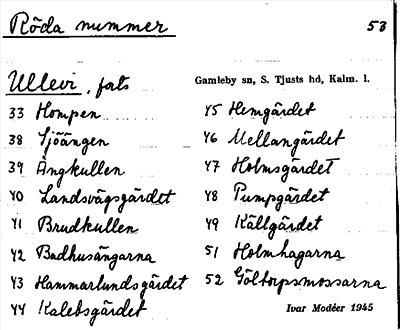 Röda nummer 53
Ullevi, forts Gamleby sn, S. Tjusts hd, Kalm. l.
33 Hompen
38 Sjöängen
39 Ängkullen
40 Landsvägsgärdet
41 Brudkullen
42 Badhusängarna
43 Hammarlundsgärdet
44 Kalebsgärdet
45 Hemgärdet
46 Mellangärdet
47 Holmsgärdet
48 Pumpgärdet
49 Källgärdet
51 Holmhagarna
52 Göltorpsmossarna
Ivar Modéer 1945